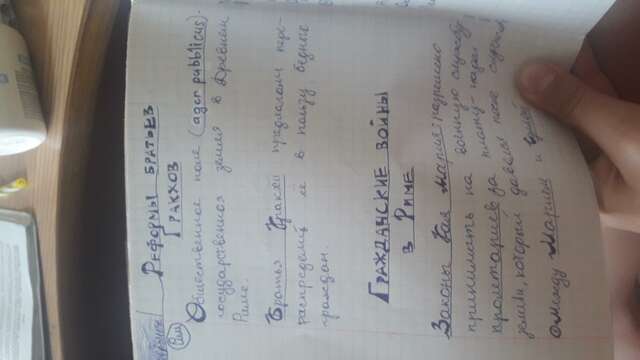 РЕФОРМЫ БРАТЬЕВ
ГРАКХОВ
Общественное поле (ager pubblicus).
государственная земля в Древнем
Риме.
Братья Гракхи предлагали пере-
распределить её в пользу бедных
граждан.
ГРАЖДАНСКИЕ ВОЙНЫ
В РИМЕ
Законы Гая Мария: разрешено
принимать на военную службу
пролетариев за плату-надел
земли, который давали после службы
между Марием и